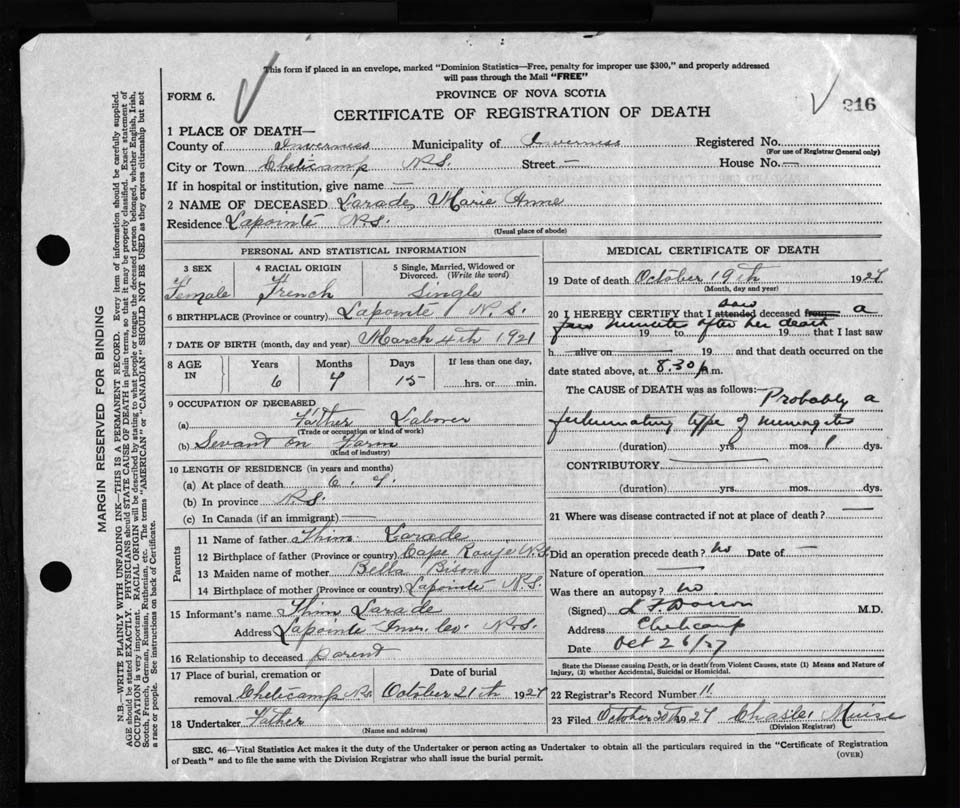 This form if placed in an envelope, marked "Dominion Statistics—Free, penalty for improper use $300," and properly addressed
will pass through the Mail "FREE"
FORM 6.
PROVINCE OF NOVA SCOTIA
216
CERTIFICATE OF REGISTRATION OF DEATH
1 PLACE OF DEATH—
County of Inverness Municipality of Inverness Registered No.
(For use of Registrar General only)
City or Town Chelicamp N.S. Street — House No. —
If in hospital or institution, give name —
2 NAME OF DECEASED Larade, Marie Anne
Residence Lapointe N.S.
(Usual place of abode)
PERSONAL AND STATISTICAL INFORMATION
3 SEX 4 RACIAL ORIGIN 5 Single, Married, Widowed or
Divorced. (Write the word)
Female French Single
6 BIRTHPLACE (Province or country) Lapointe N.S.
7 DATE OF BIRTH (month, day and year) March 4th 1921
8 AGE IN Years Months Days If less than one day,
6 7 15 ......hrs. or ...... min.
9 OCCUPATION OF DECEASED
(a) Father Laborer
(Trade or occupation or kind of work)
(b) Sevant on Farm
(Kind of industry)
10 LENGTH OF RESIDENCE (in years and months)
(a) At place of death 6. 7.
(b) In province N.S.
(c) In Canada (if an immigrant) —
Parents
11 Name of father Larade
12 Birthplace of father (Province or country) Cape Rouge N.S.
13 Maiden name of mother Bella
14 Birthplace of mother (Province or country) Lapointe N.S.
15 Informant's name Larade
Address Lapointe Inv. Co. N.S.
16 Relationship to deceased parent
17 Place of burial, cremation or Date of burial
removal Chelicamp N.S. October 21th 1927
18 Undertaker Father
(Name and address)
MEDICAL CERTIFICATE OF DEATH
19 Date of death October 19th 1927
(Month, day and year)
saw
20 I HEREBY CERTIFY that I attended deceased from a
few minutes after her death
19 to 19 that I last saw
h — alive on — 19 and that death occurred on
the date stated above, at 8.30 p.m.
The CAUSE of DEATH was as follows: Probably a
fulminating type of meningitis
(duration) yrs. mos. 1 dys.
CONTRIBUTORY —
(duration) yrs. mos. dys.
21 Where was disease contracted if not at place of death? —
Did an operation precede death? no Date of —
Nature of operation —
Was there an autopsy? no
(Signed) M.D.
Address Chelicamp
Date Oct 26/27
State the Disease causing Death, or in death from Violent Causes, state (1) Means and Nature of
Injury, (2) whether Accidental, Suicidal or Homicidal.
22 Registrar's Record Number 11
23 Filed October 1927 Charles Muise
(Division Registrar)
SEC. 46—Vital Statistics Act makes it the duty of the Undertaker or person acting as Undertaker to obtain all the particulars required in the "Certificate of Registration
of Death" and to file the same with the Division Registrar who shall issue the burial permit.
(OVER)
MARGIN RESERVED FOR BINDING
N.B.—WRITE PLAINLY WITH UNFADING INK—THIS IS A PERMANENT RECORD. Every item of information should be carefully supplied.
AGE should be stated EXACTLY. PHYSICIANS should STATE CAUSE OF DEATH in plain terms, so that it may be properly classified. Exact statement of
OCCUPATION is very important. RACIAL ORIGIN will be described by stating to what people or tongue the deceased person belonged, whether English, Irish,
Scotch, French, German, Russian, Ruthenian, etc. The terms "AMERICAN" or "CANADIAN" SHOULD NOT BE USED as they express citizenship but not
a race or people. See instructions on back of Certificate.